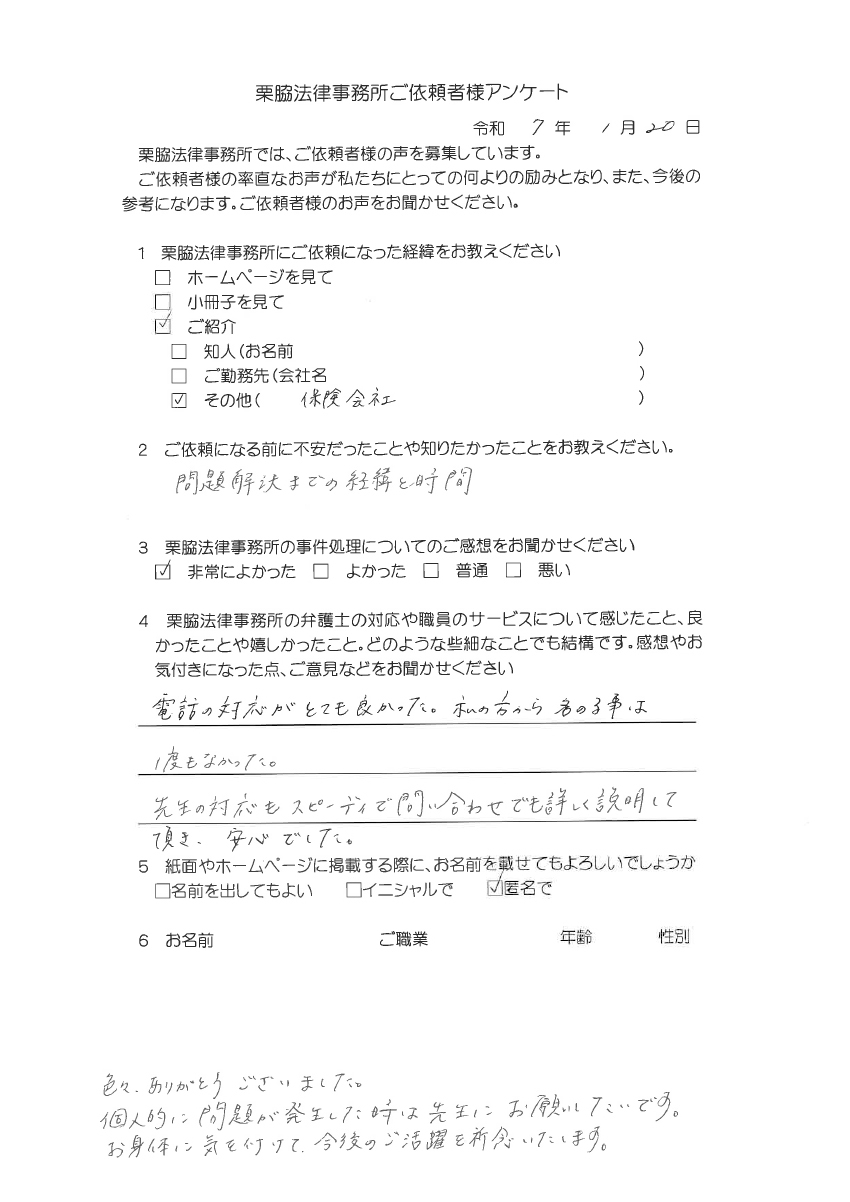 栗脇法律事務所ご依頼者様アンケート
令和 7 年 1 月 20 日
栗脇法律事務所では、ご依頼者様の声を募集しています。
ご依頼者様の率直なお声が私たちにとっての何よりの励みとなり、また、今後の
参考になります。ご依頼者様のお声をお聞かせください。
1 栗脇法律事務所にご依頼になった経緯をお教えください
□ ホームページを見て
□ 小冊子を見て
☑ ご紹介
□ 知人(お名前 )
□ ご勤務先(会社名 )
☑ その他( 保険会社 )
2 ご依頼になる前に不安だったことや知りたかったことをお教えください。
問題解決までの経緯と時間
3 栗脇法律事務所の事件処理についてのご感想をお聞かせください
☑ 非常によかった □ よかった □ 普通 □ 悪い
4 栗脇法律事務所の弁護士の対応や職員のサービスについて感じたこと、良
かったことや嬉しかったこと。どのような些細なことでも結構です。感想やお
気付きになった点、ご意見などをお聞かせください
電話の対応がとても良かった。私の方から名のる事は
1度もなかった。
先生の対応もスピーディで問い合わせでも詳しく説明して
頂き、安心でした。
5 紙面やホームページに掲載する際に、お名前を載せてもよろしいでしょうか
□名前を出してもよい □イニシャルで ☑匿名で
6 お名前 ご職業 年齢 性別
色々、ありがとうございました。
個人的に問題が発生した時は先生にお願いしたいです。
お身体に気を付けて、今後のご活躍を祈念いたします。